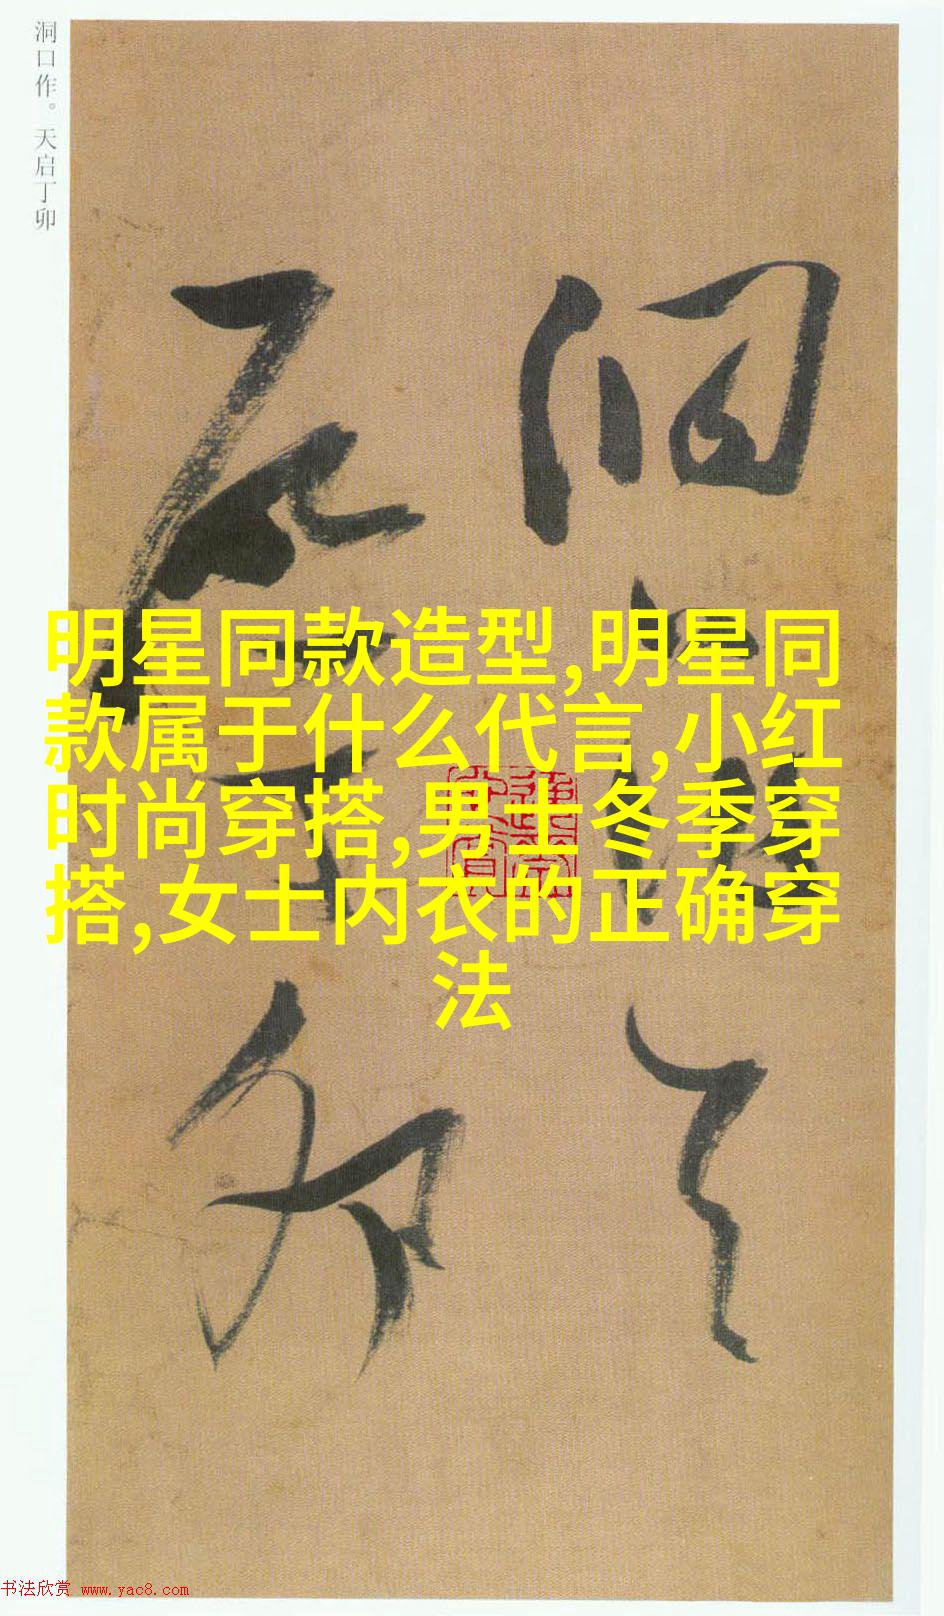 洞口作。天启丁卯
明星同款造型,明星同
款属于什么代言,小红
时尚穿搭,男士冬季穿
搭,女士内衣的正确穿
法
洞口作
天启丁卯
书法欣赏 www.yac8.com